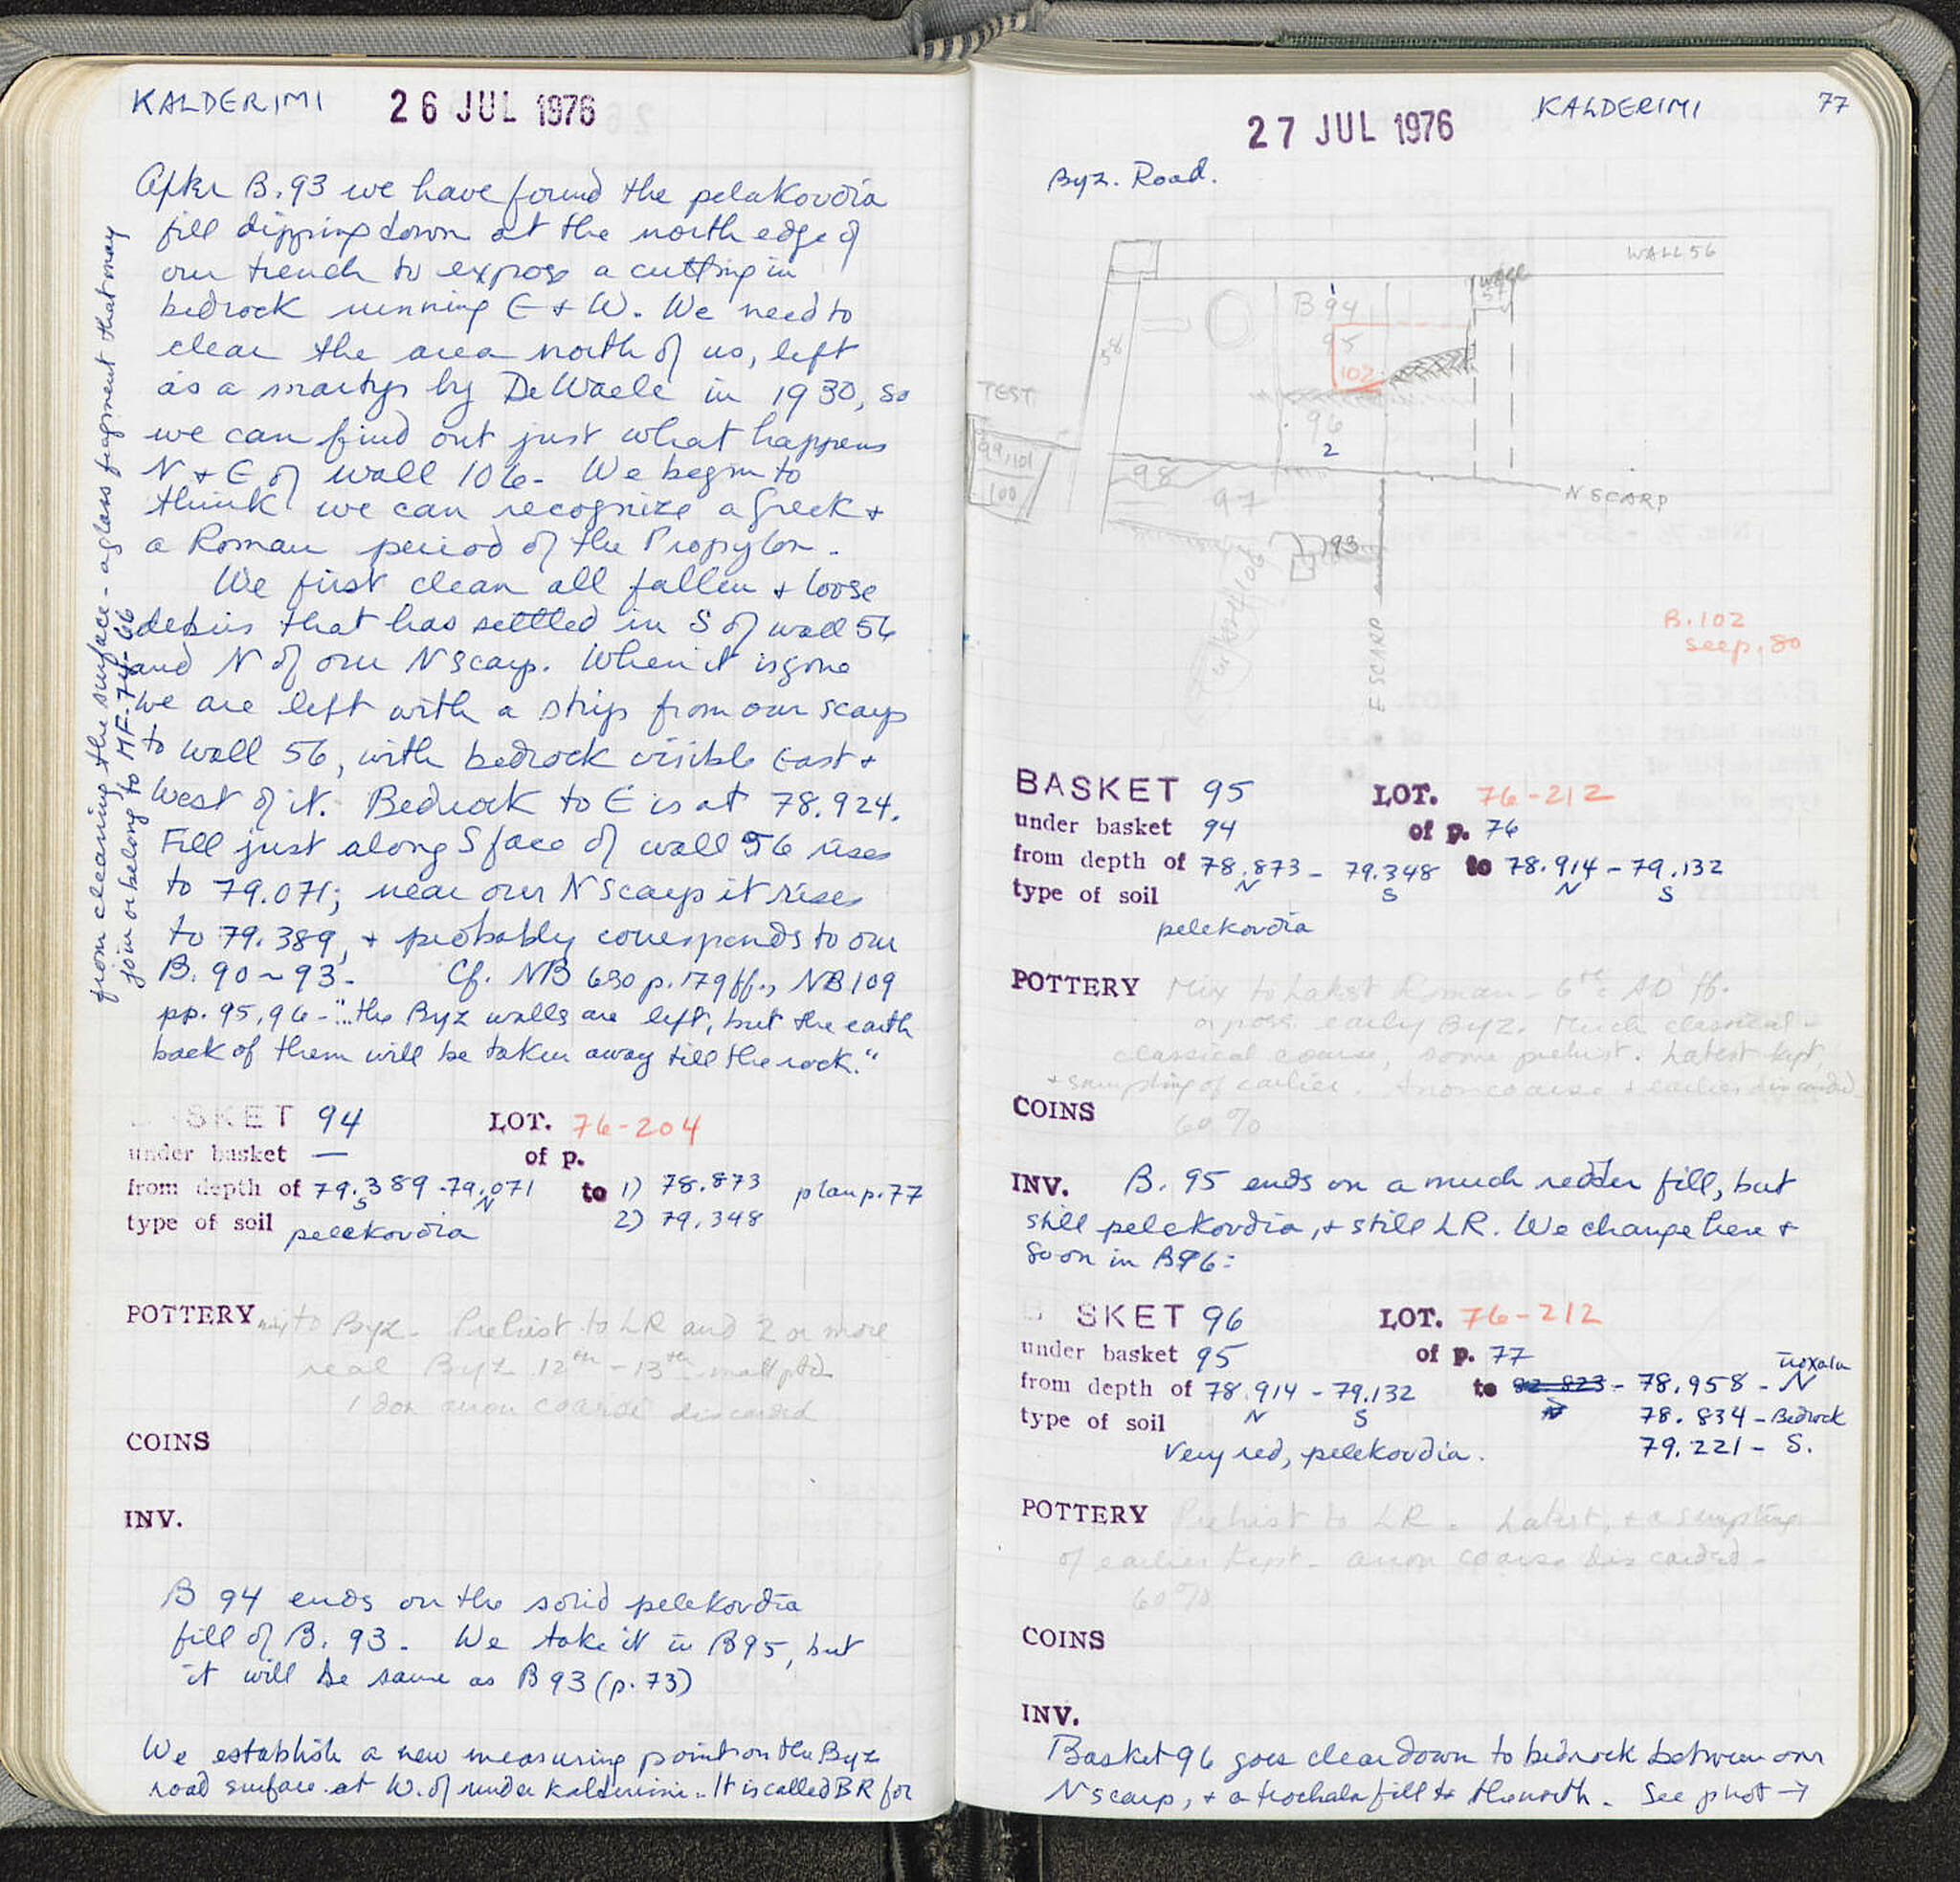 KALDERIMI 26 JUL 1976
After B.93 we have found the pelekovdia
fill dipping down at the north edge of
our trench to expose a cutting in
bedrock running E + W. We need to
clear the area north of us, left
as a martyr by DeWaele in 1930, so
we can find out just what happens
N + E of wall 106. We begin to
think we can recognize a Greek +
a Roman period of the Propylon.
We first clean all fallen + loose
debris that has settled in S of wall 56
and N of our N scarp. When it is gone
we are left with a strip from our scarp
to wall 56, with bedrock visible East +
West of it. Bedrock to E is at 78.924.
Fill just along S face of wall 56 rises
to 79.071; near our N scarp it rises
to 79.389, + probably corresponds to our
B. 90 ~ 93. Cf. NB 630 p. 179 ff., NB 109
pp. 95, 96 - "..the Byz walls are left, but the earth
back of them will be taken away till the rock."
from cleaning the surface - a glass fragment that may
join or belong to MF-76-66
BASKET 94 LOT. 76-204
under basket — of p.
from depth of 79.389 - 79.071 to 1) 78.873 plan p. 77
S N 2) 79.348
type of soil pelekovdia
POTTERY mix to Byz. Prehist to LR and 2 or more
real Byz 12th - 13th small ptd
1 box anon coarse discarded
COINS
INV.
B 94 ends on the solid pelekovdia
fill of B. 93. We take it in B95, but
it will be same as B 93 (p. 73)
We establish a new measuring point on the Byz
road surface at W. of under Kalderimi. It is called BR for
27 JUL 1976 KALDERIMI 77
Byz. Road.
WALL 56
wall
57
B 94
1
95
102
58
TEST
96
2
99, 101
100
98
97
N SCARP
93
106
E SCARP
B. 102
see p. 80
BASKET 95 LOT. 76-212
under basket 94 of p. 76
from depth of 78.873 - 79.348 to 78.914 - 79.132
N S N S
type of soil
pelekovdia
POTTERY Mix to Latest Roman - 6th c AD ff.
or poss. early Byz. Much classical -
classical coarse, some prehist. Latest kept,
+ sampling of earlier. Anon coarse + earlier discarded
60%
COINS
INV. B. 95 ends on a much redder fill, but
still pelekovdia, + still LR. We change here +
go on in B96:
BASKET 96 LOT. 76-212
under basket 95 of p. 77
from depth of 78.914 - 79.132 to 78.958 - N
N S
78.834 - Bedrock
79.221 - S.
type of soil
Very red, pelekovdia.
POTTERY Prehist to LR. Latest, + a sampling
of earlier kept - anon coarse discarded -
60%
COINS
INV.
Basket 96 goes clear down to bedrock between our
N scarp, + a trochala fill to the north. See phot →